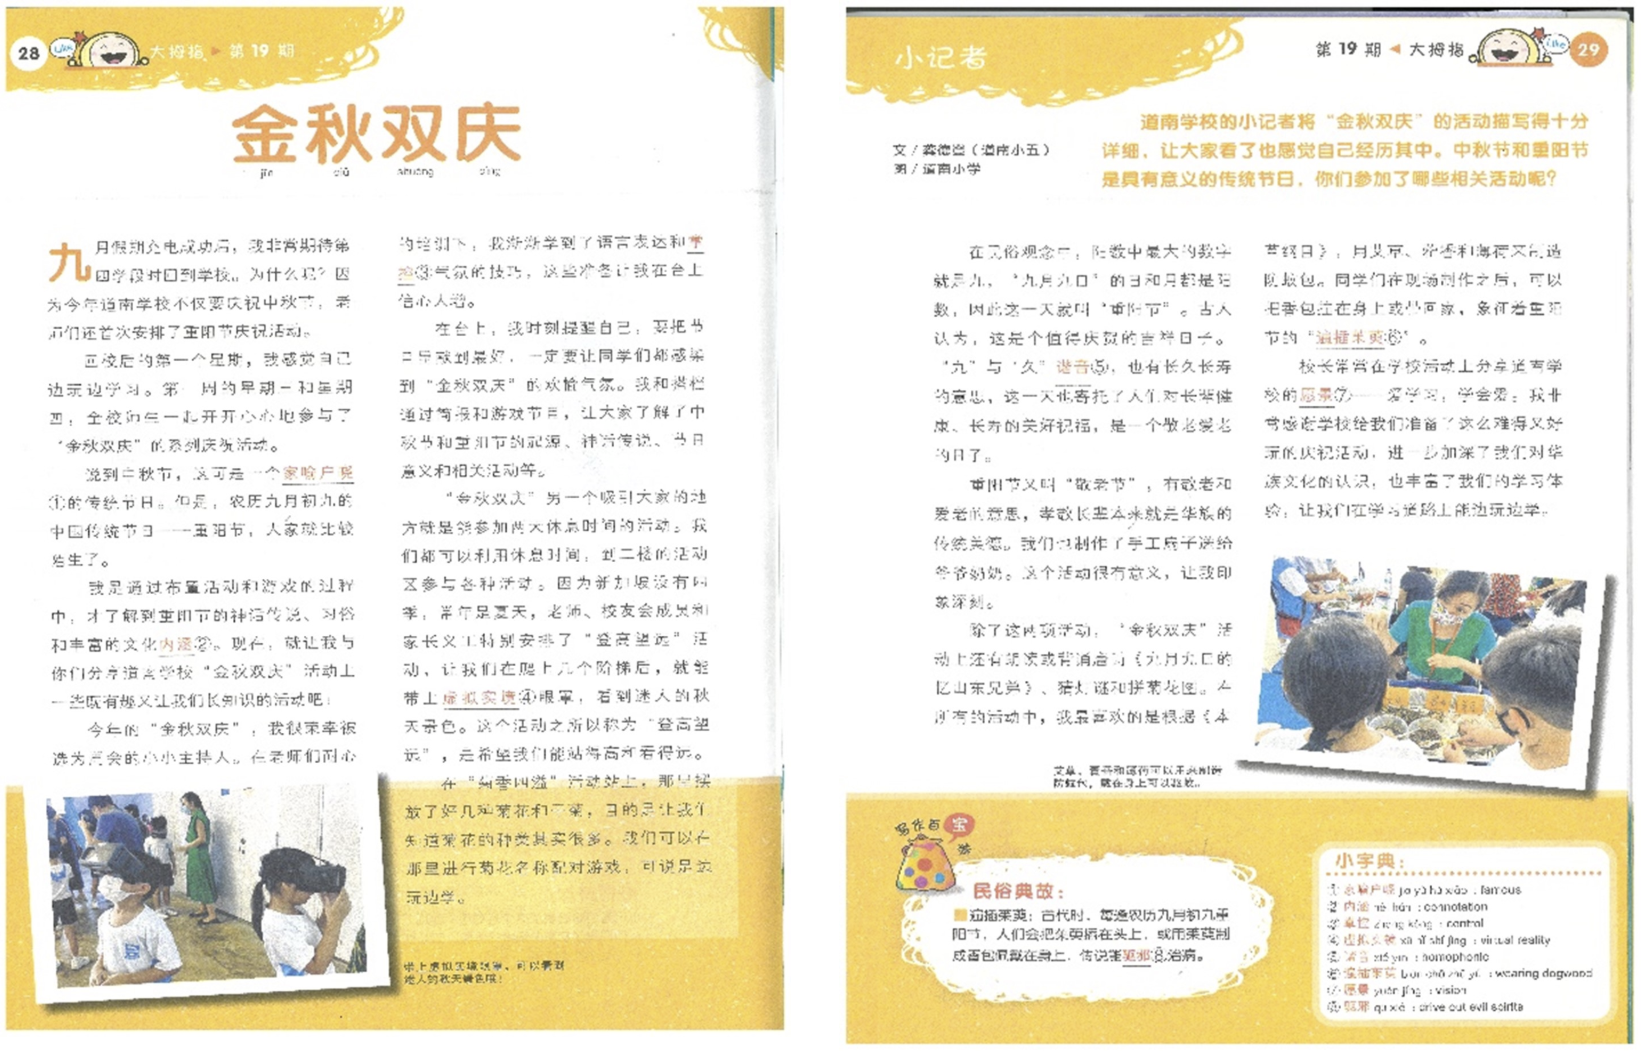 28
Like
大拇指 ▶ 第 19 期
金秋双庆
jīn qiū shuāng qìng
九月假期充电成功后，我非常期待第
四学段时回到学校。为什么呢？因
为今年道南学校不仅要庆祝中秋节，老
师们还首次安排了重阳节庆祝活动。
回校后的第一个星期，我感觉自己
边玩边学习。第一周的星期三和星期
四，全校师生一起开开心心地参与了
“金秋双庆”的系列庆祝活动。
说到中秋节，这可是一个家喻户晓
①的传统节日。但是，农历九月初九的
中国传统节日——重阳节，大家就比较
陌生了。
我是通过布置活动和游戏的过程
中，才了解到重阳节的神话传说、习俗
和丰富的文化内涵②。现在，就让我与
你们分享道南学校“金秋双庆”活动上
一些既有趣又让我们长知识的活动吧！
今年的“金秋双庆”，我很荣幸被
选为周会的小小主持人。在老师们耐心
的培训下，我渐渐学到了语言表达和掌
控③气氛的技巧，这些准备让我在台上
信心大增。
在台上，我时刻提醒自己，要把节
目呈献到最好，一定要让同学们都感染
到“金秋双庆”的欢愉气氛。我和搭档
通过简报和游戏节目，让大家了解了中
秋节和重阳节的起源、神话传说、节日
意义和相关活动等。
“金秋双庆”另一个吸引大家的地
方就是能参加两天休息时间的活动。我
们都可以利用休息时间，到二楼的活动
区参与各种活动。因为新加坡没有四
季，常年是夏天，老师、校友会成员和
家长义工特别安排了“登高望远”活
动，让我们在爬上几个阶梯后，就能
带上虚拟实境④眼罩，看到迷人的秋
天景色。这个活动之所以称为“登高望
远”，是希望我们能站得高和看得远。
在“菊香四溢”活动站上，那里摆
放了好几种菊花和干菊，目的是让我们
知道菊花的种类其实很多。我们可以在
那里进行菊花名称配对游戏，可说是边
玩边学。
带上虚拟实境眼罩，可以看到
迷人的秋天景色哦！
小记者
第 19 期 ◀ 大拇指
Like
29
文／龚德澄（道南小五）
图／道南小学
道南学校的小记者将“金秋双庆”的活动描写得十分
详细，让大家看了也感觉自己经历其中。中秋节和重阳节
是具有意义的传统节日，你们参加了哪些相关活动呢？
在民俗观念中，阳数中最大的数字
就是九，“九月九日”的日和月都是阳
数，因此这一天就叫“重阳节”。古人
认为，这是个值得庆贺的吉祥日子。
“九”与“久”谐音⑤，也有长久长寿
的意思，这一天也寄托了人们对长辈健
康、长寿的美好祝福，是一个敬老爱老
的日子。
重阳节又叫“敬老节”，有敬老和
爱老的意思，孝敬长辈本来就是华族的
传统美德。我们也制作了手工扇子送给
爷爷奶奶。这个活动很有意义，让我印
象深刻。
除了这两项活动，“金秋双庆”活
动上还有朗读或背诵唐诗《九月九日的
忆山东兄弟》、猜灯谜和拼菊花图。在
所有的活动中，我最喜欢的是根据《本
草纲目》，用艾草、藿香和薄荷来制造
防蚊包。同学们在现场制作之后，可以
把香包挂在身上或带回家，象征着重阳
节的“遍插茱萸⑥”。
校长常常在学校活动上分享道南学
校的愿景⑦——爱学习，学会爱。我非
常感谢学校给我们准备了这么难得又好
玩的庆祝活动，进一步加深了我们对华
族文化的认识，也丰富了我们的学习体
验，让我们在学习道路上能边玩边学。
艾草、藿香和薄荷可以用来制造
防蚊包，戴在身上可以驱蚊。
写作百宝袋
民俗典故：
遍插茱萸：古代时，每逢农历九月初九重
阳节，人们会把茱萸插在头上，或用茱萸制
成香包佩戴在身上，传说能驱邪⑧治病。
小字典：
① 家喻户晓 jiā yù hù xiǎo：famous
② 内涵 nèi hán：connotation
③ 掌控 zhǎng kòng：control
④ 虚拟实境 xū nǐ shí jìng：virtual reality
⑤ 谐音 xié yīn：homophonic
⑥ 遍插茱萸 biàn chā zhū yú：wearing dogwood
⑦ 愿景 yuàn jǐng：vision
⑧ 驱邪 qū xié：drive out evil spirits